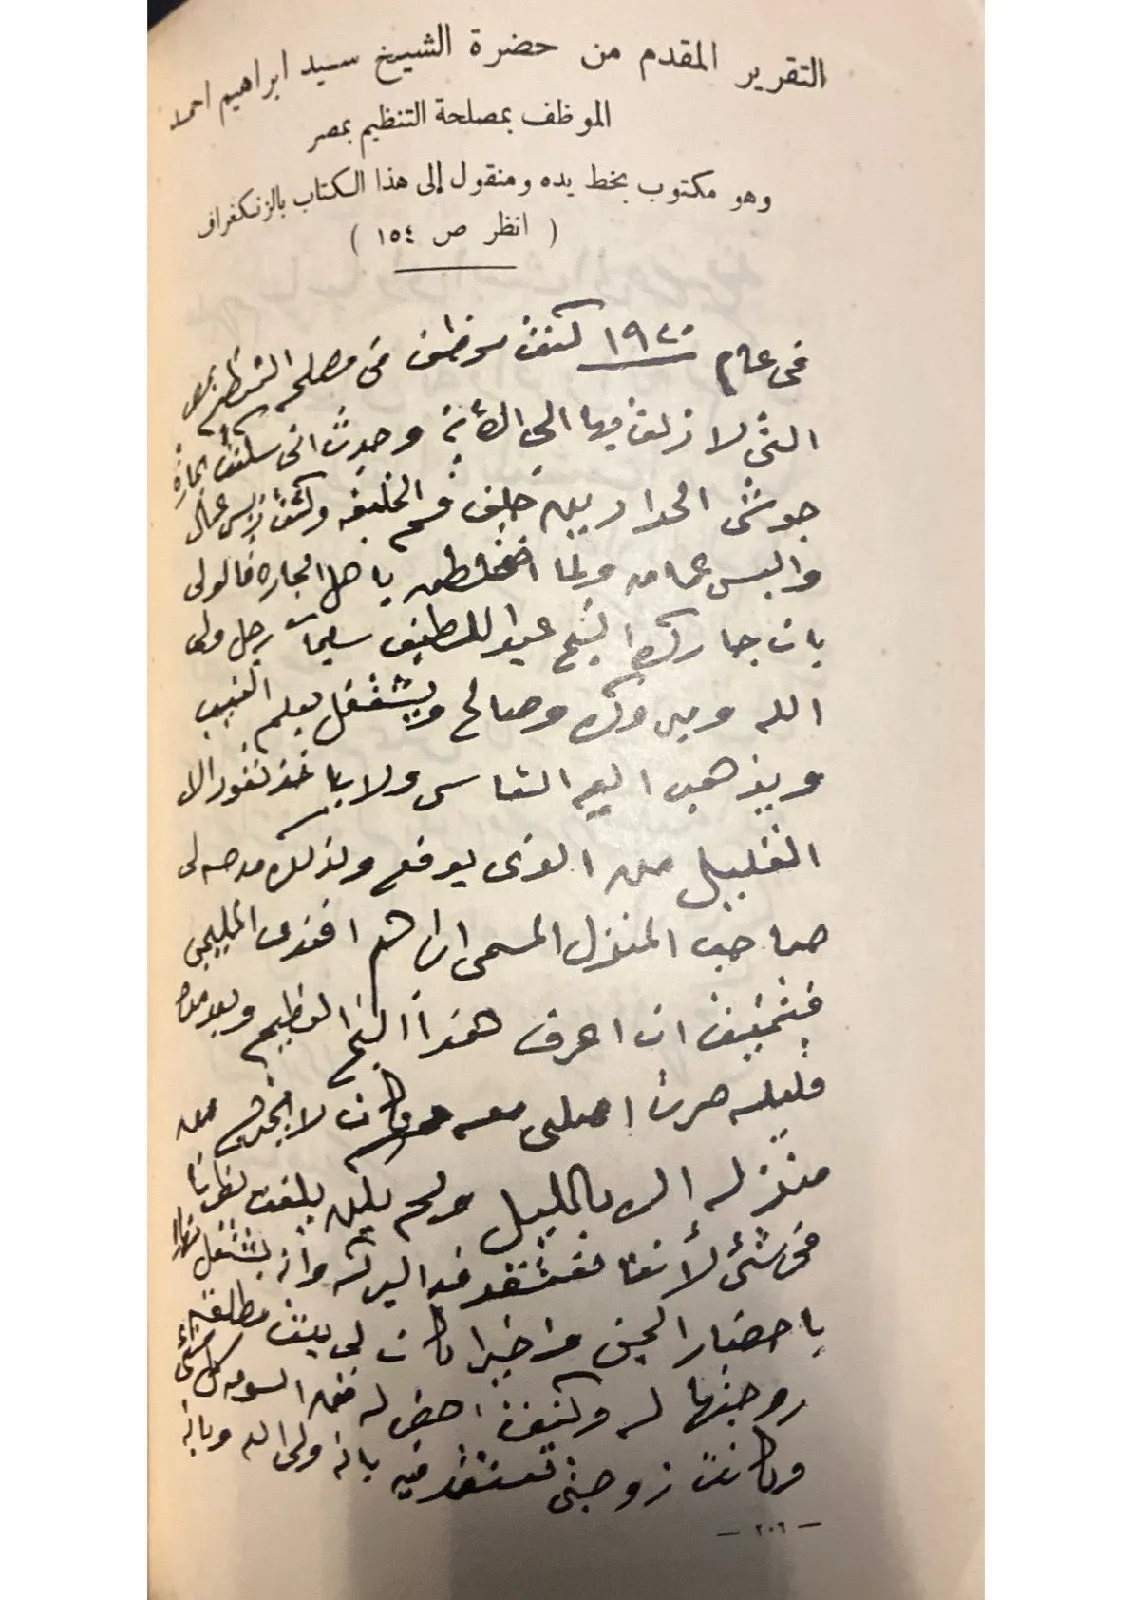 التقرير المقدم من حضرة الشيخ سيد ابراهيم احمد
الموظف بمصلحة التنظيم بمصر
وهو مكتوب بخط يده ومنقول إلى هذا الكتاب بالزنكغراف
( انظر ص ١٥٤ )
فى عام ١٩٢٠ كنت موظف فى مصلحه التنظيم بمصر
التى لا زلت فيها الى الأن وحدث انى سكنت بحارة
حوش الحدادين خلف قسم الخليفه وكنت
والبس عمامه ولما اختلطت باهل الحاره قالولى
بان جارك الشيخ عبد اللطيف سليمان رجل ولى
الله ومبروك وصالح ويشتغل بعلم الغيب
ويذهب اليه الناس ولا يأخذ نقود الا
القليل من الذى يدفع وكذلك مدحه لى
صاحب المنزل المسمى ابراهيم افندى المليجى
فتمنيت ان اعرف هذا الشيخ العظيم وبعد مدة
قليله صرت اصلى معه وكان لا يخرج من
منزله الا بالليل ولم يكن يلفت نظرنا
فى شئ لأننا نعتقد فيه البركه وانه يشتغل نهارا
باحضار الجن واخيرا كان لى بنت مطلقه
زوجتها له وكنت احضر له من السوق كل شئ
وكانت زوجتى تعتقد فيه بانه ولى الله وبانه
— ٢٠٦ —